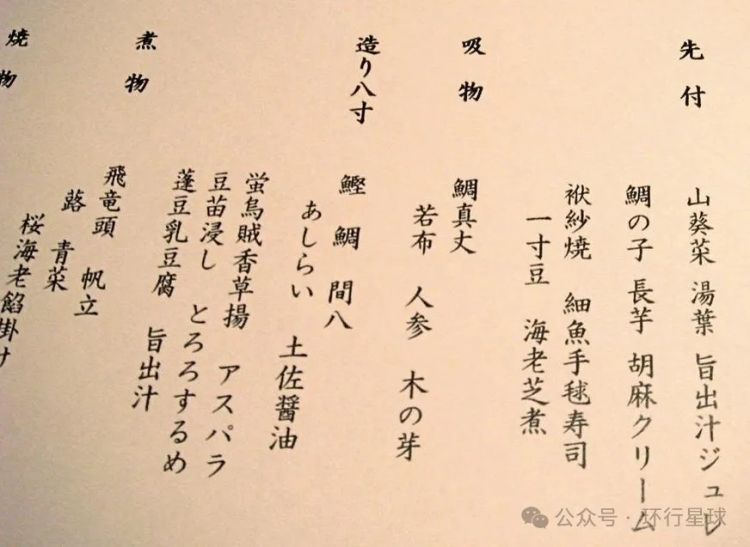 先付
山葵菜 湯葉 旨出汁ジュレ
鯛の子 長芋 胡麻クリーム
袱紗焼 細魚手毬寿司
一寸豆 海老芝煮
吸物
鯛真丈
若布 人参 木の芽
造り八寸
鰹 鯛 間八
あしらい 土佐醤油
蛍烏賊香草揚 アスパラ
豆苗浸し とろろするめ
蓬豆乳豆腐 旨出汁
煮物
飛竜頭 帆立
蕗 青菜
桜海老餡掛け
焼物
公众号·环行星球